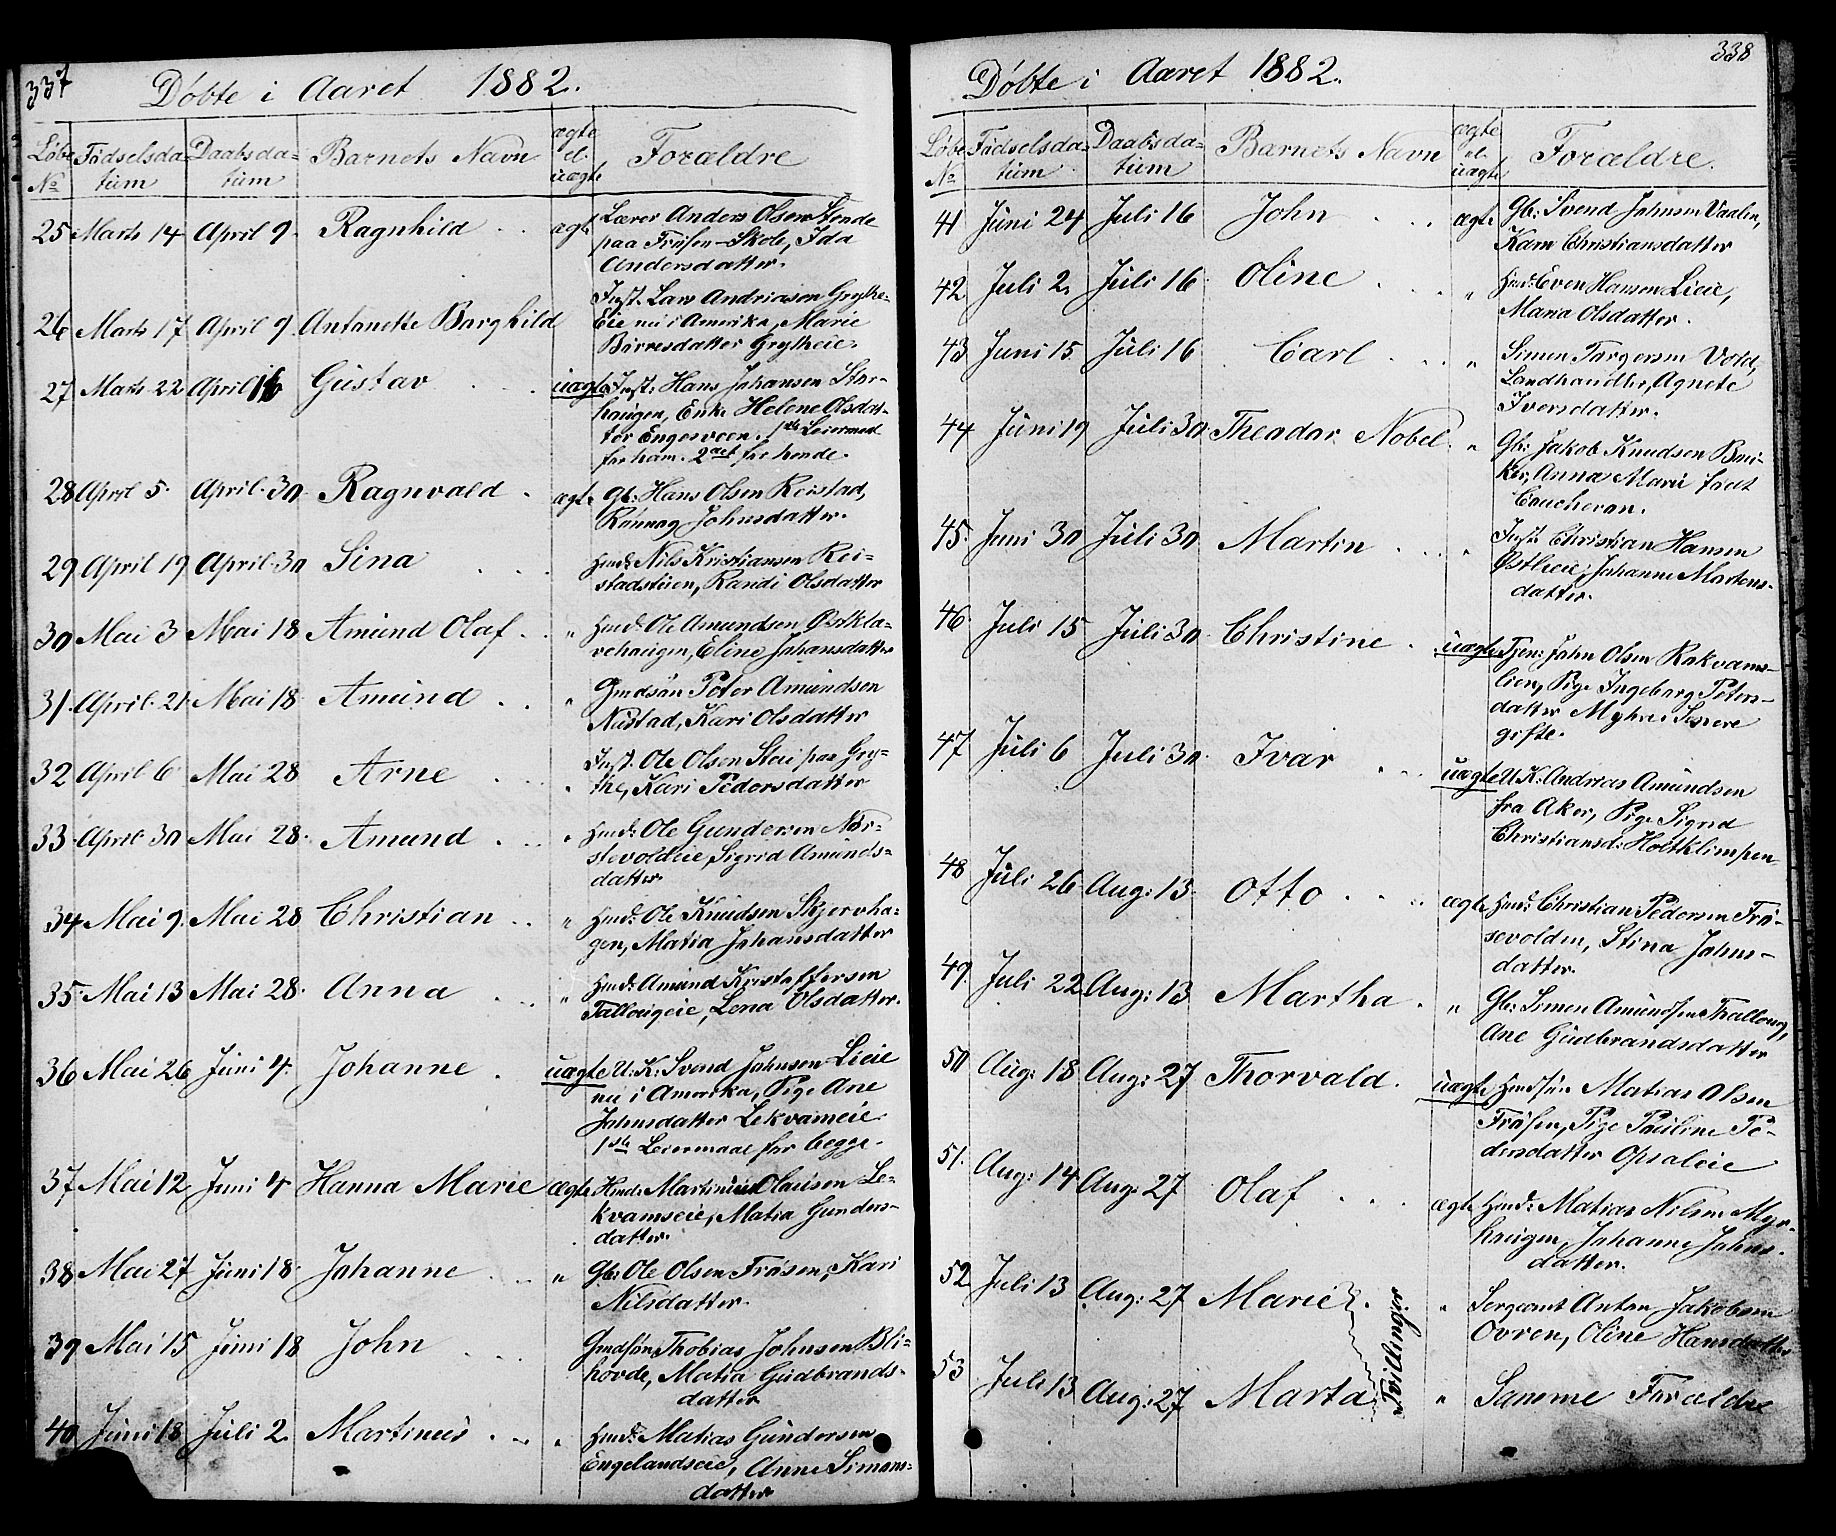 337
Døbte i Aaret 1882.
Løbe Fødselsda- Daabsda- Barnets Navn ægte el. uægte Forældre
No tum tum
25 Marts 14 April 9. Ragnhild ægte Lærer Anders Olsen Stende
paa Frøsen-Skole, Ida
Andersdatter.
26 Marts 17 April 9. Antonette Borghild Inst. Lars Andriasen Grythe-
Eie nu i Amerika, Marie
Børresdatter Grytheie.
27 Marts 22 April 16 Gustav uægte Inst: Hans Johansen Stor-
haugen, Enke Helene Olsdat-
ter Engesveen. 1ste Leiermaal
for ham. 2det for hende.
28 April 5. April 30. Ragnvald ægte Gb: Hans Olsen Reistad,
Rønnog Johnsdatter.
29 April 19 April 30 Sina Hmd: Nils Kristiansen Rei-
stadstuen, Randi Olsdatter
30 Mai 3 Mai 18 Amund Olaf " Hmd: Ole Amundsen
vehaugen, Eline Johansdatter
31. April 21 Mai 18 Amund " Gmdsøn Peter Amundsen
Nustad, Kari Olsdatter
32 April 6 Mai 28 Arne " Inst. Ole Olsen Stai paa Gry-
the, Kari Pedersdatter
33. April 30 Mai 28. Amund " Hmd: Ole Gundersen Nør-
stevoldeie, Sigrid Amunds-
datter
34 Mai 9. Mai 28 Christian " Hmd: Ole Knudsen Skjervha-
gen, Matia Johansdatter
35 Mai 13 Mai 28. Anna " Hmd: Amund Kristoffersen
Tallougeie, Lena Olsdatter.
36 Mai 26 Juni 4. Johanne uægte U. K: Svend Johnsen Lieie
nu i Amerika, Pige Ane
Johnsdatter Lekvameie
1ste Leiermaal for begge.
37 Mai 12 Juni 4 Hanna Marie ægte Hmd: Martinius Olausen Le-
kvamseie, Matia Gunders-
datter.
38 Mai 27 Juni 18. Johanne " Gb: Ole Olsen Frøsen, Kari
Nilsdatter.
39 Mai 15 Juni 18 John Gmdsøn Thobias Johnsen Bli-
hovde, Matia Gudbrands-
datter
40 Juni 18 Juli 2. Martinus " Hmd: Matias Gundersen
Engelandseie, Anne Simens-
datter
338
Døbte i Aaret 1882.
Løbe Fødselsda- Daabsda- Barnets Navn ægte el. uægte Forældre.
No tum tum
41 Juni 24 Juli 16 John ægte Gb: Svend Johnsen Vaalen,
Karn Christiansdatter
42 Juli 2. Juli 16 Oline " Hmd: Even Hansen Lieie,
Mana Olsdatter.
43 Juni 15 Juli 16 Carl " Simen Torgersen Vold,
Landhandler, Agnete
Iversdatter.
44 Juni 19 Juli 30. Theodor Nobel. " Gb: Jakob Knudsen
Anna Marie født
Coucheron.
45. Juni 30 Juli 30 Martin " Inst: Christian Hansen
Østlieie, Johanne Martens-
datter.
46. Juli 15 Juli 30. Christine uægte Tjen: John Olsen Rakvams-
lien, Pige Ingeborg Peters-
datter Myhre Senere
gifte.
47 Juli 6 Juli 30. Ivar uægte U. K: Andreas Amundsen
fra Aker, Pige Sigrid
Christiansd: Holtklimpen
48 Juli 26 Aug: 13 Otto ægte Hmd: Christian Pedersen Frø-
sevolden, Stina Johns-
datter.
49 Juli 22 Aug: 13 Martha " Gb: Simen Amundsen Thalloug,
Ane Gudbrandsdatter
50 Aug: 18 Aug: 27 Thorvald. uægte Hmdsøn Matias Olsen
Frøsen, Pige Pauline Pe-
dersdatter Opsaleie
51. Aug: 14 Aug: 27 Olaf ægte Hmd: Matias Nilsen Myr-
haugen, Johanne Johns-
datter.
52 Juli 13 Aug: 27 Marie " Sergeant Anton Jakobsen
Ovren, Oline Hansdatter
Tvillinger
53 Juli 13 Aug: 27 Marta " Samme Forældre